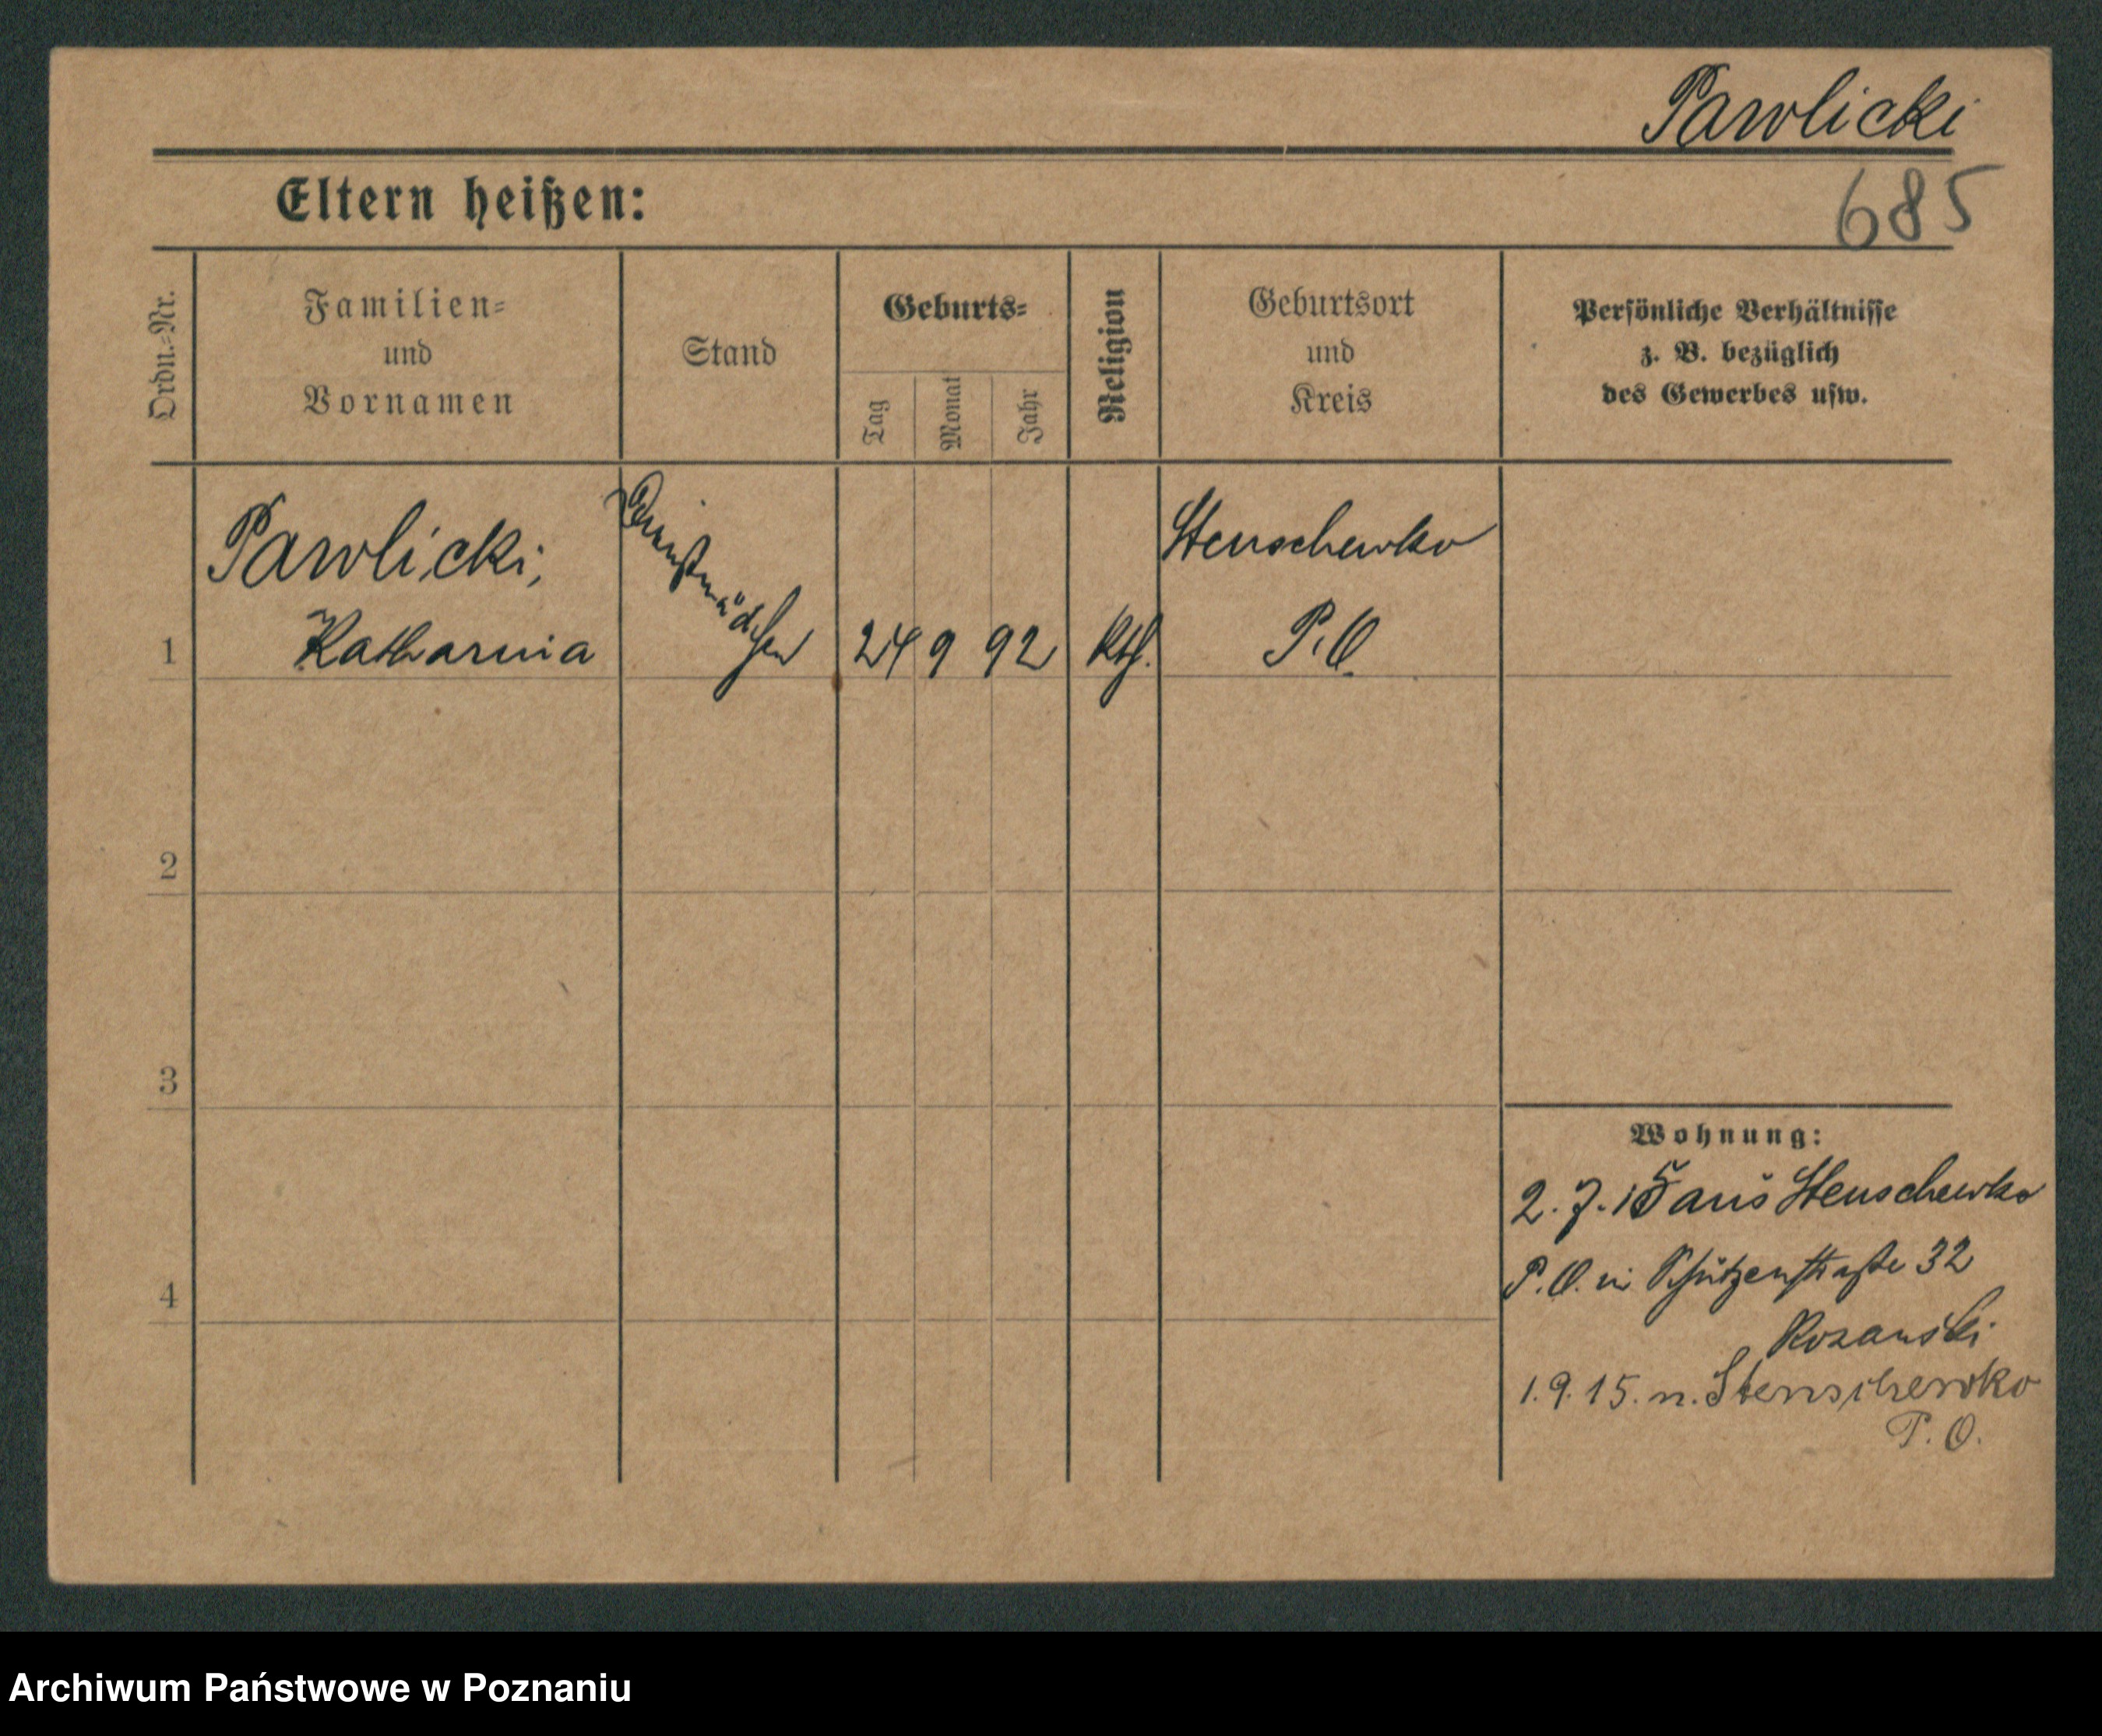 Pawlicki
685
Eltern heißen:
Ordn.-Nr.
Familien-
und
Vornamen
Stand
Geburts-
Tag
Monat
Jahr
Religion
Geburtsort
und
Kreis
Persönliche Verhältnisse
z. B. bezüglich
des Gewerbes usw.
1
Pawlicki,
Katharina
Dienstmädchen
24 9 92
kth.
Stenschewko
P. O.
2
3
4
Wohnung:
2. 7. 15 aus Stenschewko
P. O. in Schützenstraße 32
Rozanski
1. 9. 15. n. Stenschewko
P. O.
Archiwum Państwowe w Poznaniu